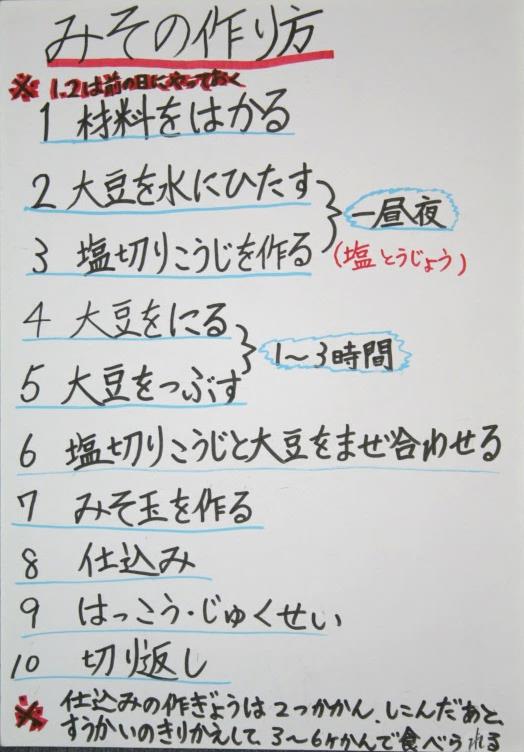 みその作り方
※ 1.2は前の日にやっておく
1 材料をはかる
2 大豆を水にひたす
一昼夜
3 塩切りこうじを作る
(塩とうじょう)
4 大豆をにる
1〜3時間
5 大豆をつぶす
6 塩切りこうじと大豆をまぜ合わせる
7 みそ玉を作る
8 仕込み
9 はっこう・じゅくせい
10 切り返し
※ 仕込みの作ぎょうは2つかかん、しこんだあと、
すうかいのきりかえして、3〜6ヶかんで食べられる